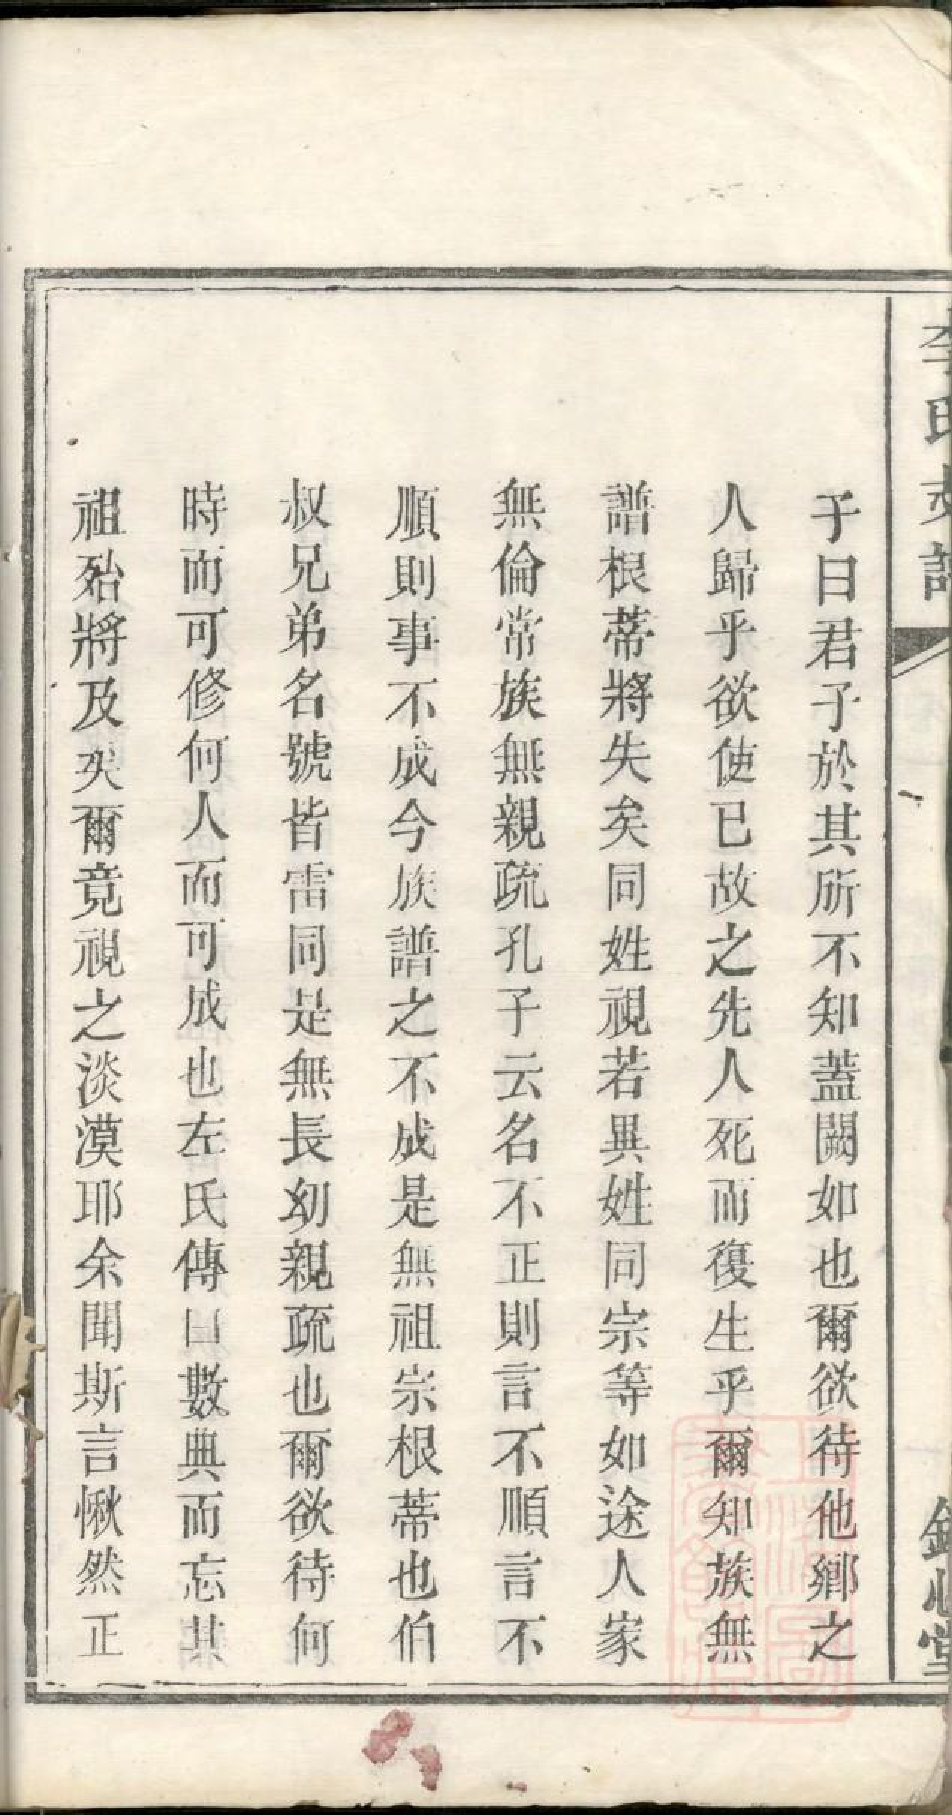 李氏支譜
子曰君子於其所不知蓋闕如也爾欲待他鄉之
人歸乎欲使已故之先人死而復生乎爾知族無
譜根蒂將失矣同姓視若異姓同宗等如途人家
無倫常族無親疏孔子云名不正則言不順言不
順則事不成今族譜之不成是無祖宗根蒂也伯
叔兄弟名號皆雷同是無長幼親疏也爾欲待何
時而可修何人而可成也左氏傳曰數典而忘其
祖殆將及矣爾竟視之淡漠耶余聞斯言愀然正